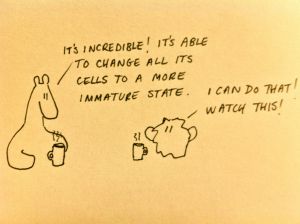 IT'S INCREDIBLE! IT'S ABLE
TO CHANGE ALL ITS
CELLS TO A MORE
IMMATURE STATE.
I CAN DO THAT!
WATCH THIS!